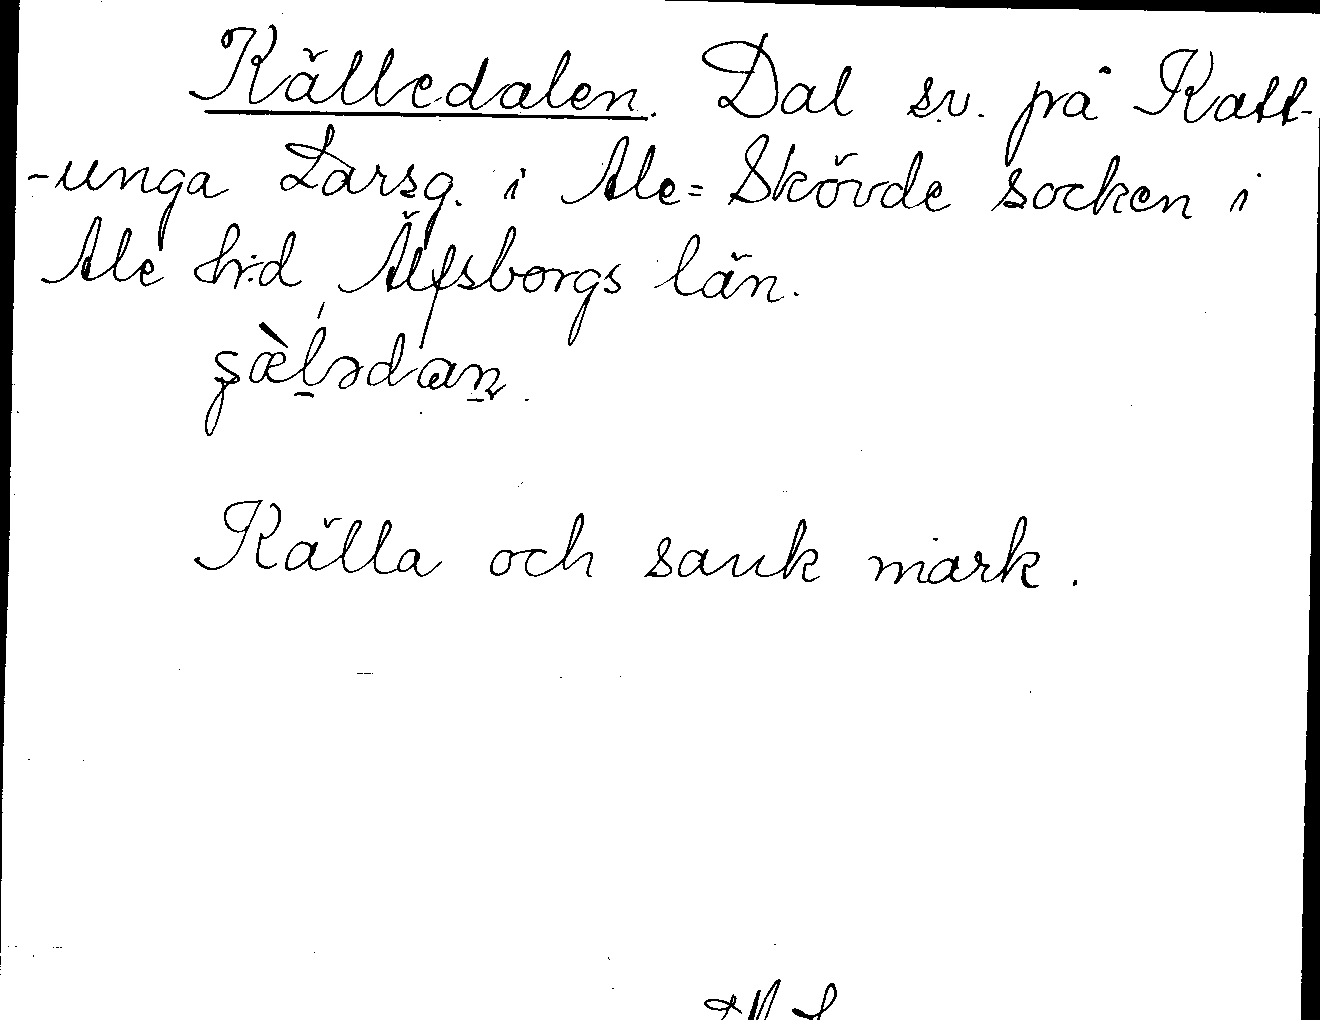 Källedalen. Dal s.v. på Katt-
-unga Larsg. i Ale=Skövde socken i
Ale h:d, Älfsborgs län.
Källa och sank mark.